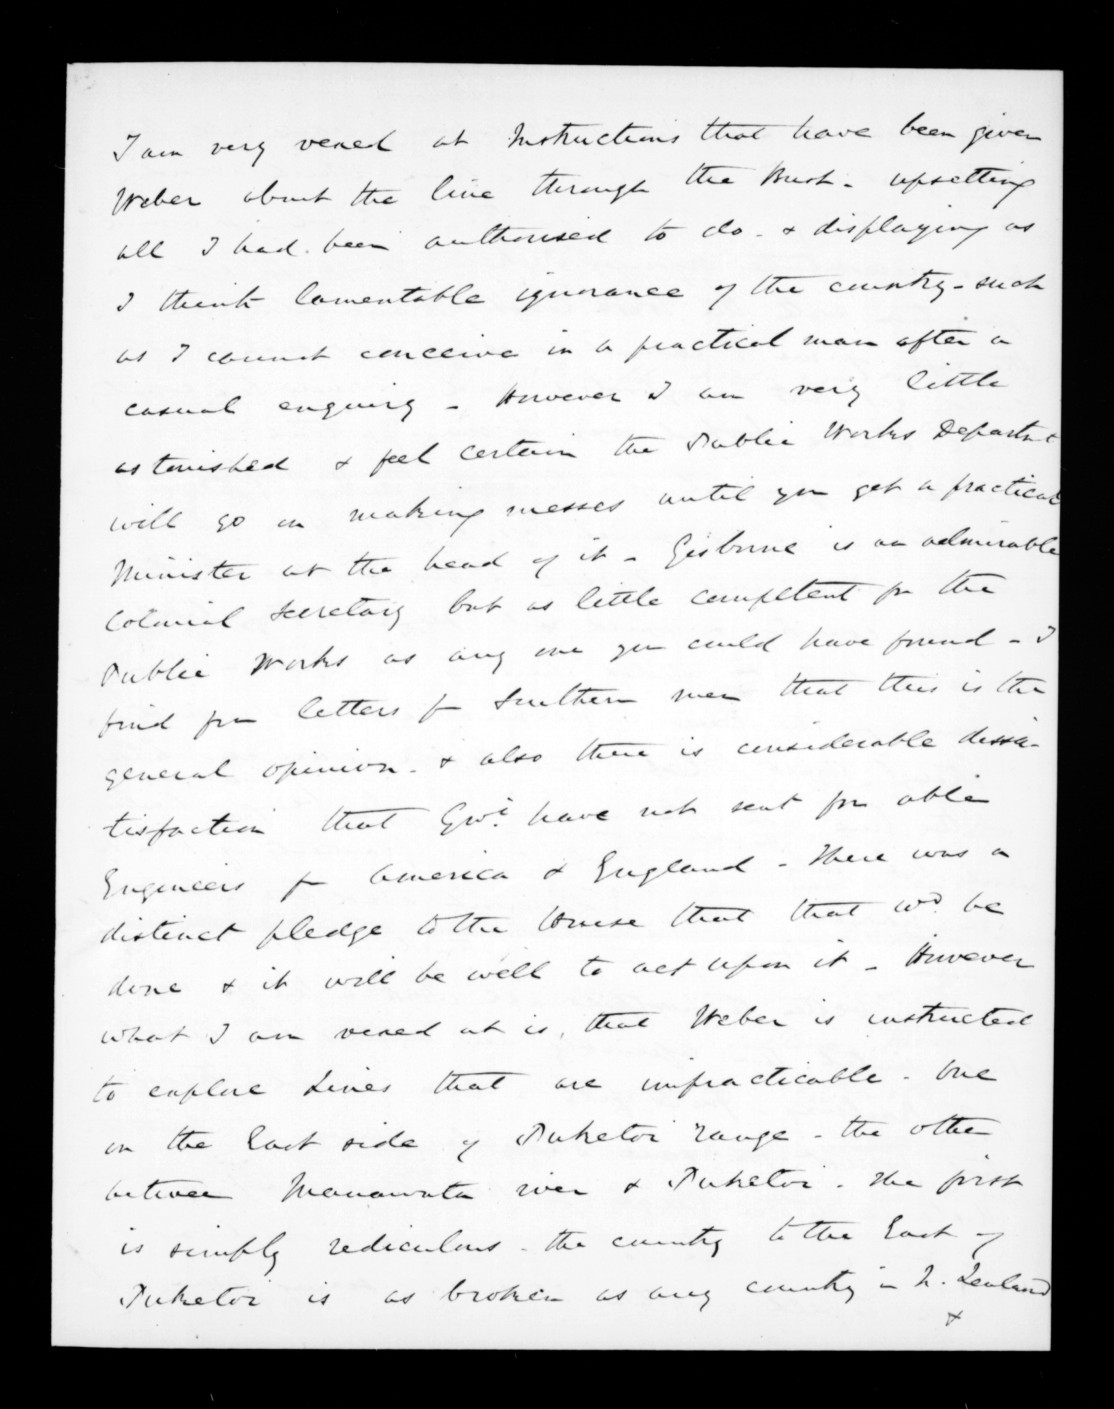 I am very vexed at Instructions that have been given
Weber about the line through the Bush - upsetting
all I had been authorised to do - & displaying as
I think lamentable ignorance of the country - such
as I cannot conceive in a practical man after a
casual enquiry - However I am very little
astonished & feel certain the Public Works Departmt
will go on making messes until you get a practical
Minister at the head of it - Gisborne is an admirable
Colonial Secretary but as little competent for the
Public Works as any one you could have found - I
find from letters fr Southern men that this is the
general opinion - & also there is considerable dissa-
tisfaction that Govt. have not sent for able
Engineers fr America & England - There was a
distinct pledge to the House that that wd. be
done & it will be well to act upon it - However
what I am vexed at is, that Weber is instructed
to explore Lines that are impracticable - One
on the East side of Puketoi range - the other
between Manawata river & Puketoi - The first
is simply rediculous - the country to the East of
Puketoi is as broken as any country in N. Zealand
&